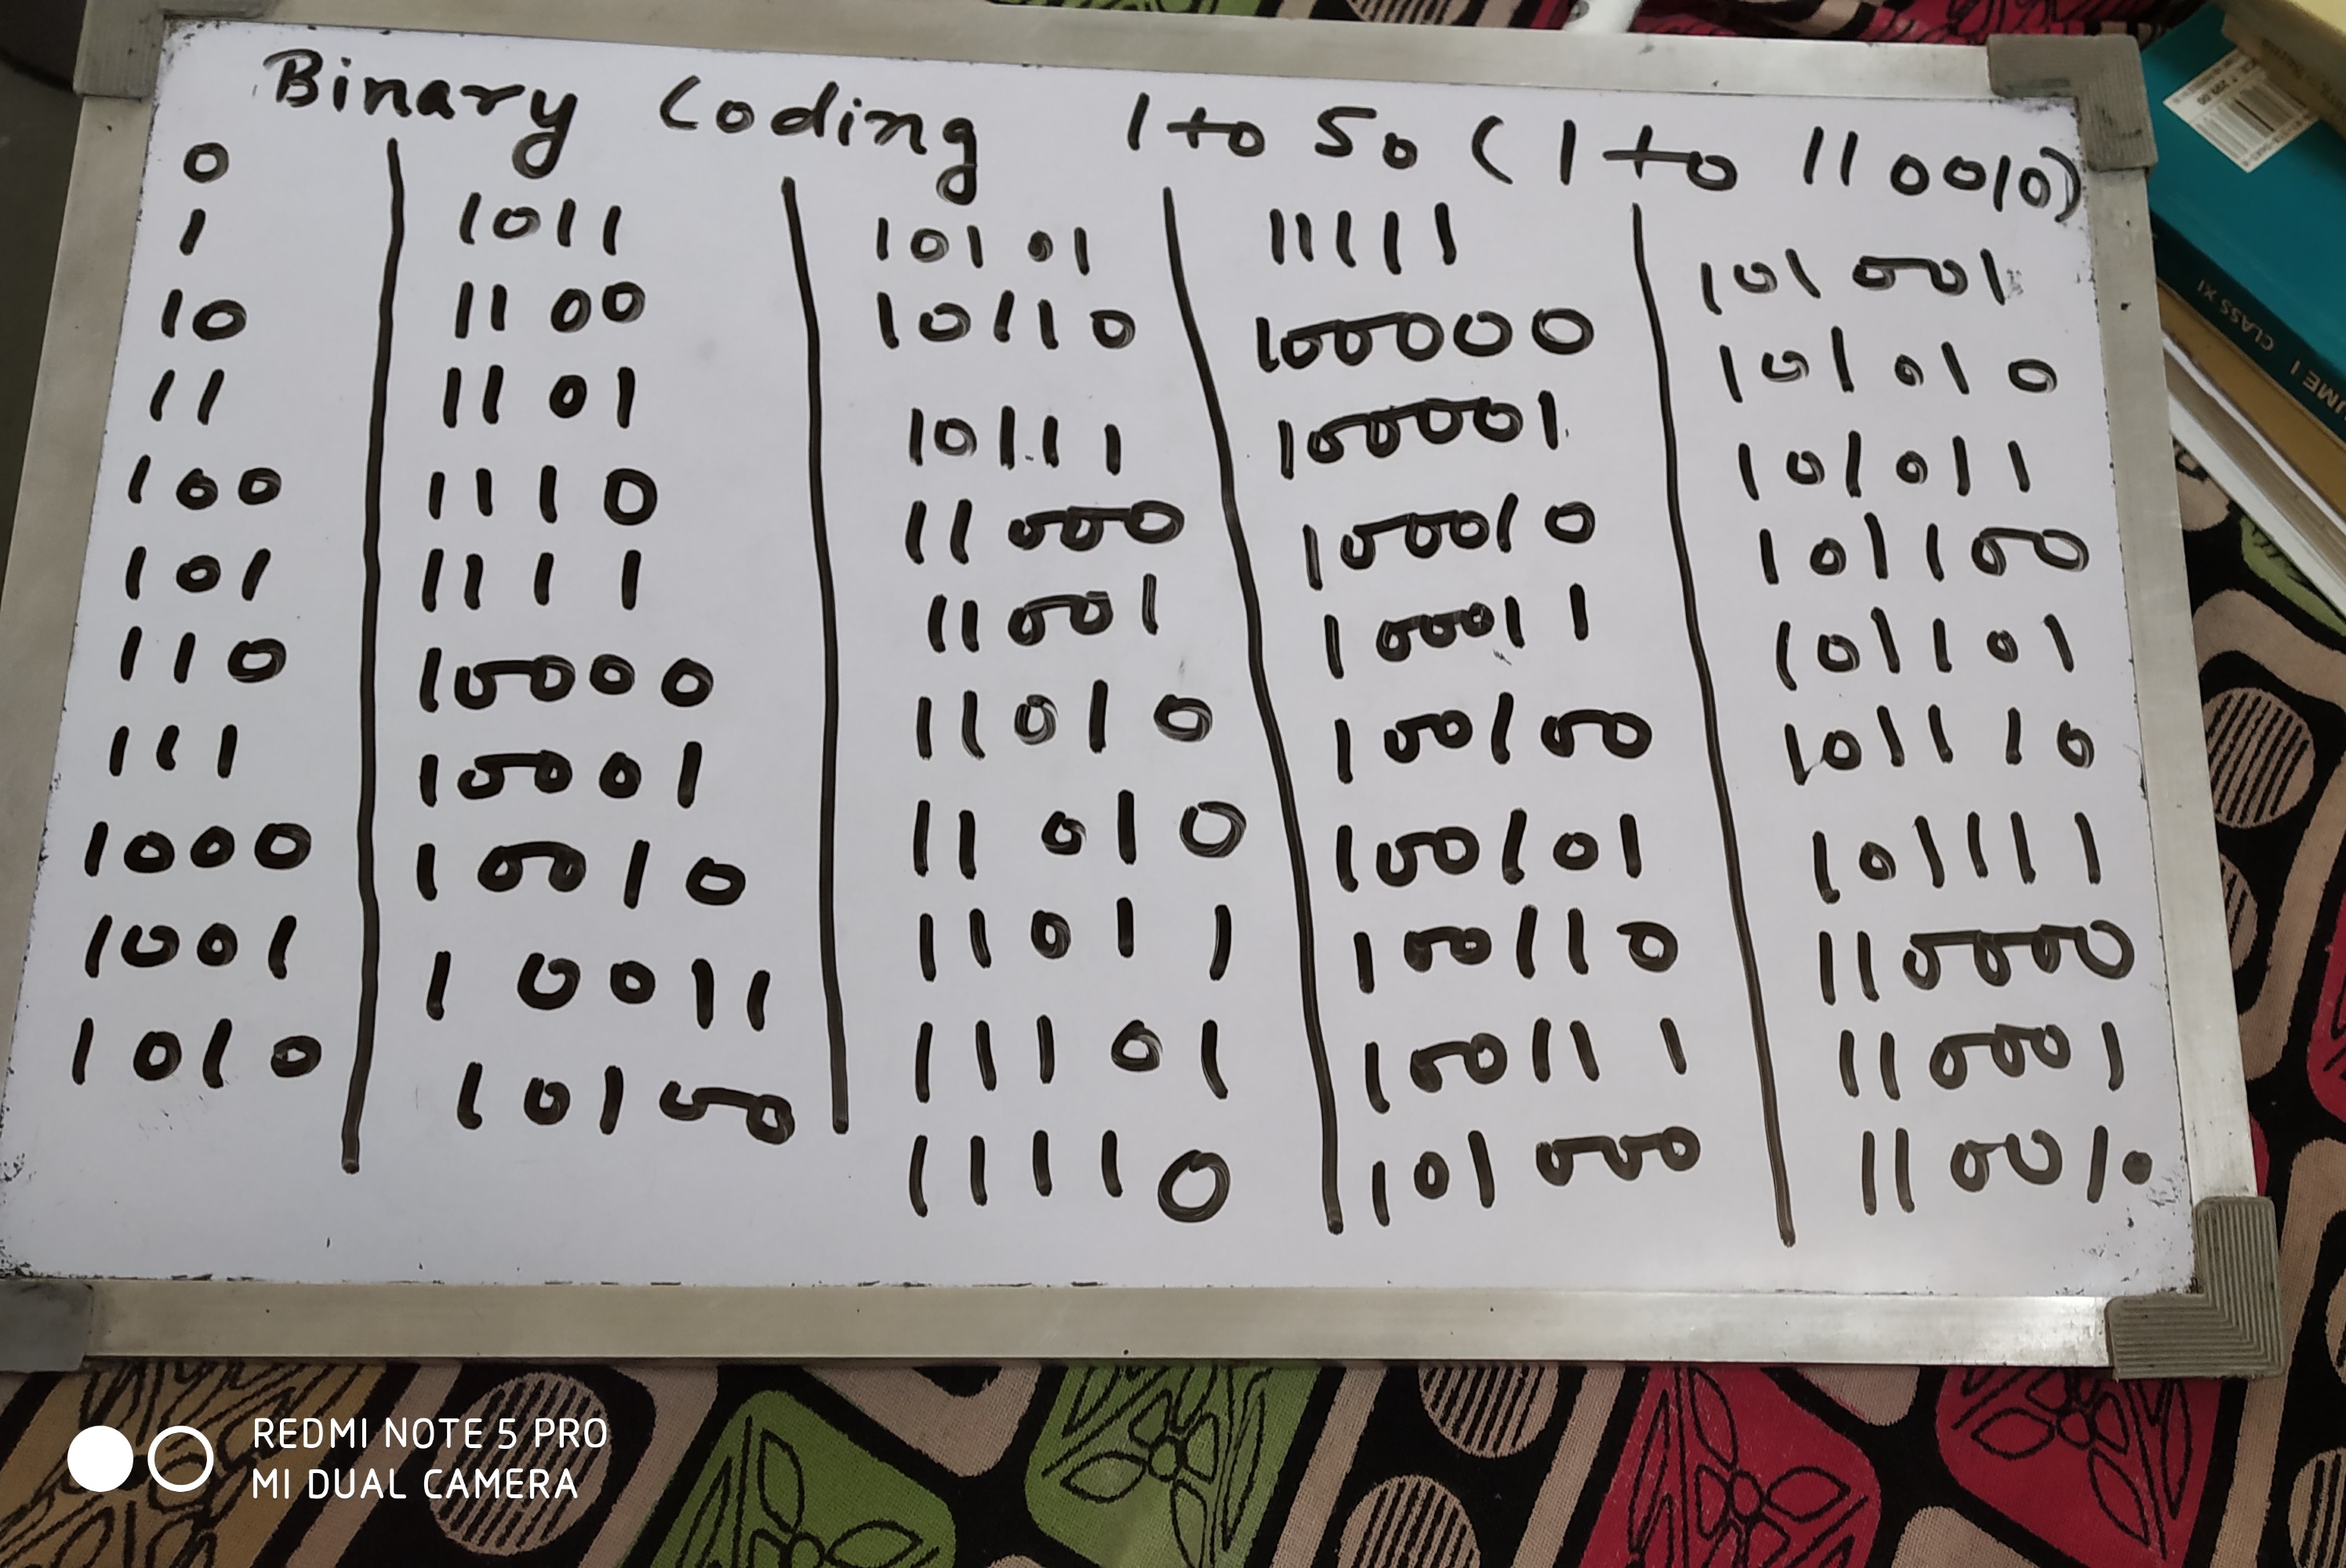 Binary Coding 1 to 50 (1 to 110010)
0
1
10
11
100
101
110
111
1000
1001
1010
1011
1100
1101
1110
1111
10000
10001
10010
10011
10100
10101
10110
10111
11000
11001
11010
11010
11011
11101
11110
11111
100000
100001
100010
100011
100100
100101
100110
100111
101000
101001
101010
101011
101100
101101
101110
101111
110000
110001
110010
CLASS XI
REDMI NOTE 5 PRO
MI DUAL CAMERA